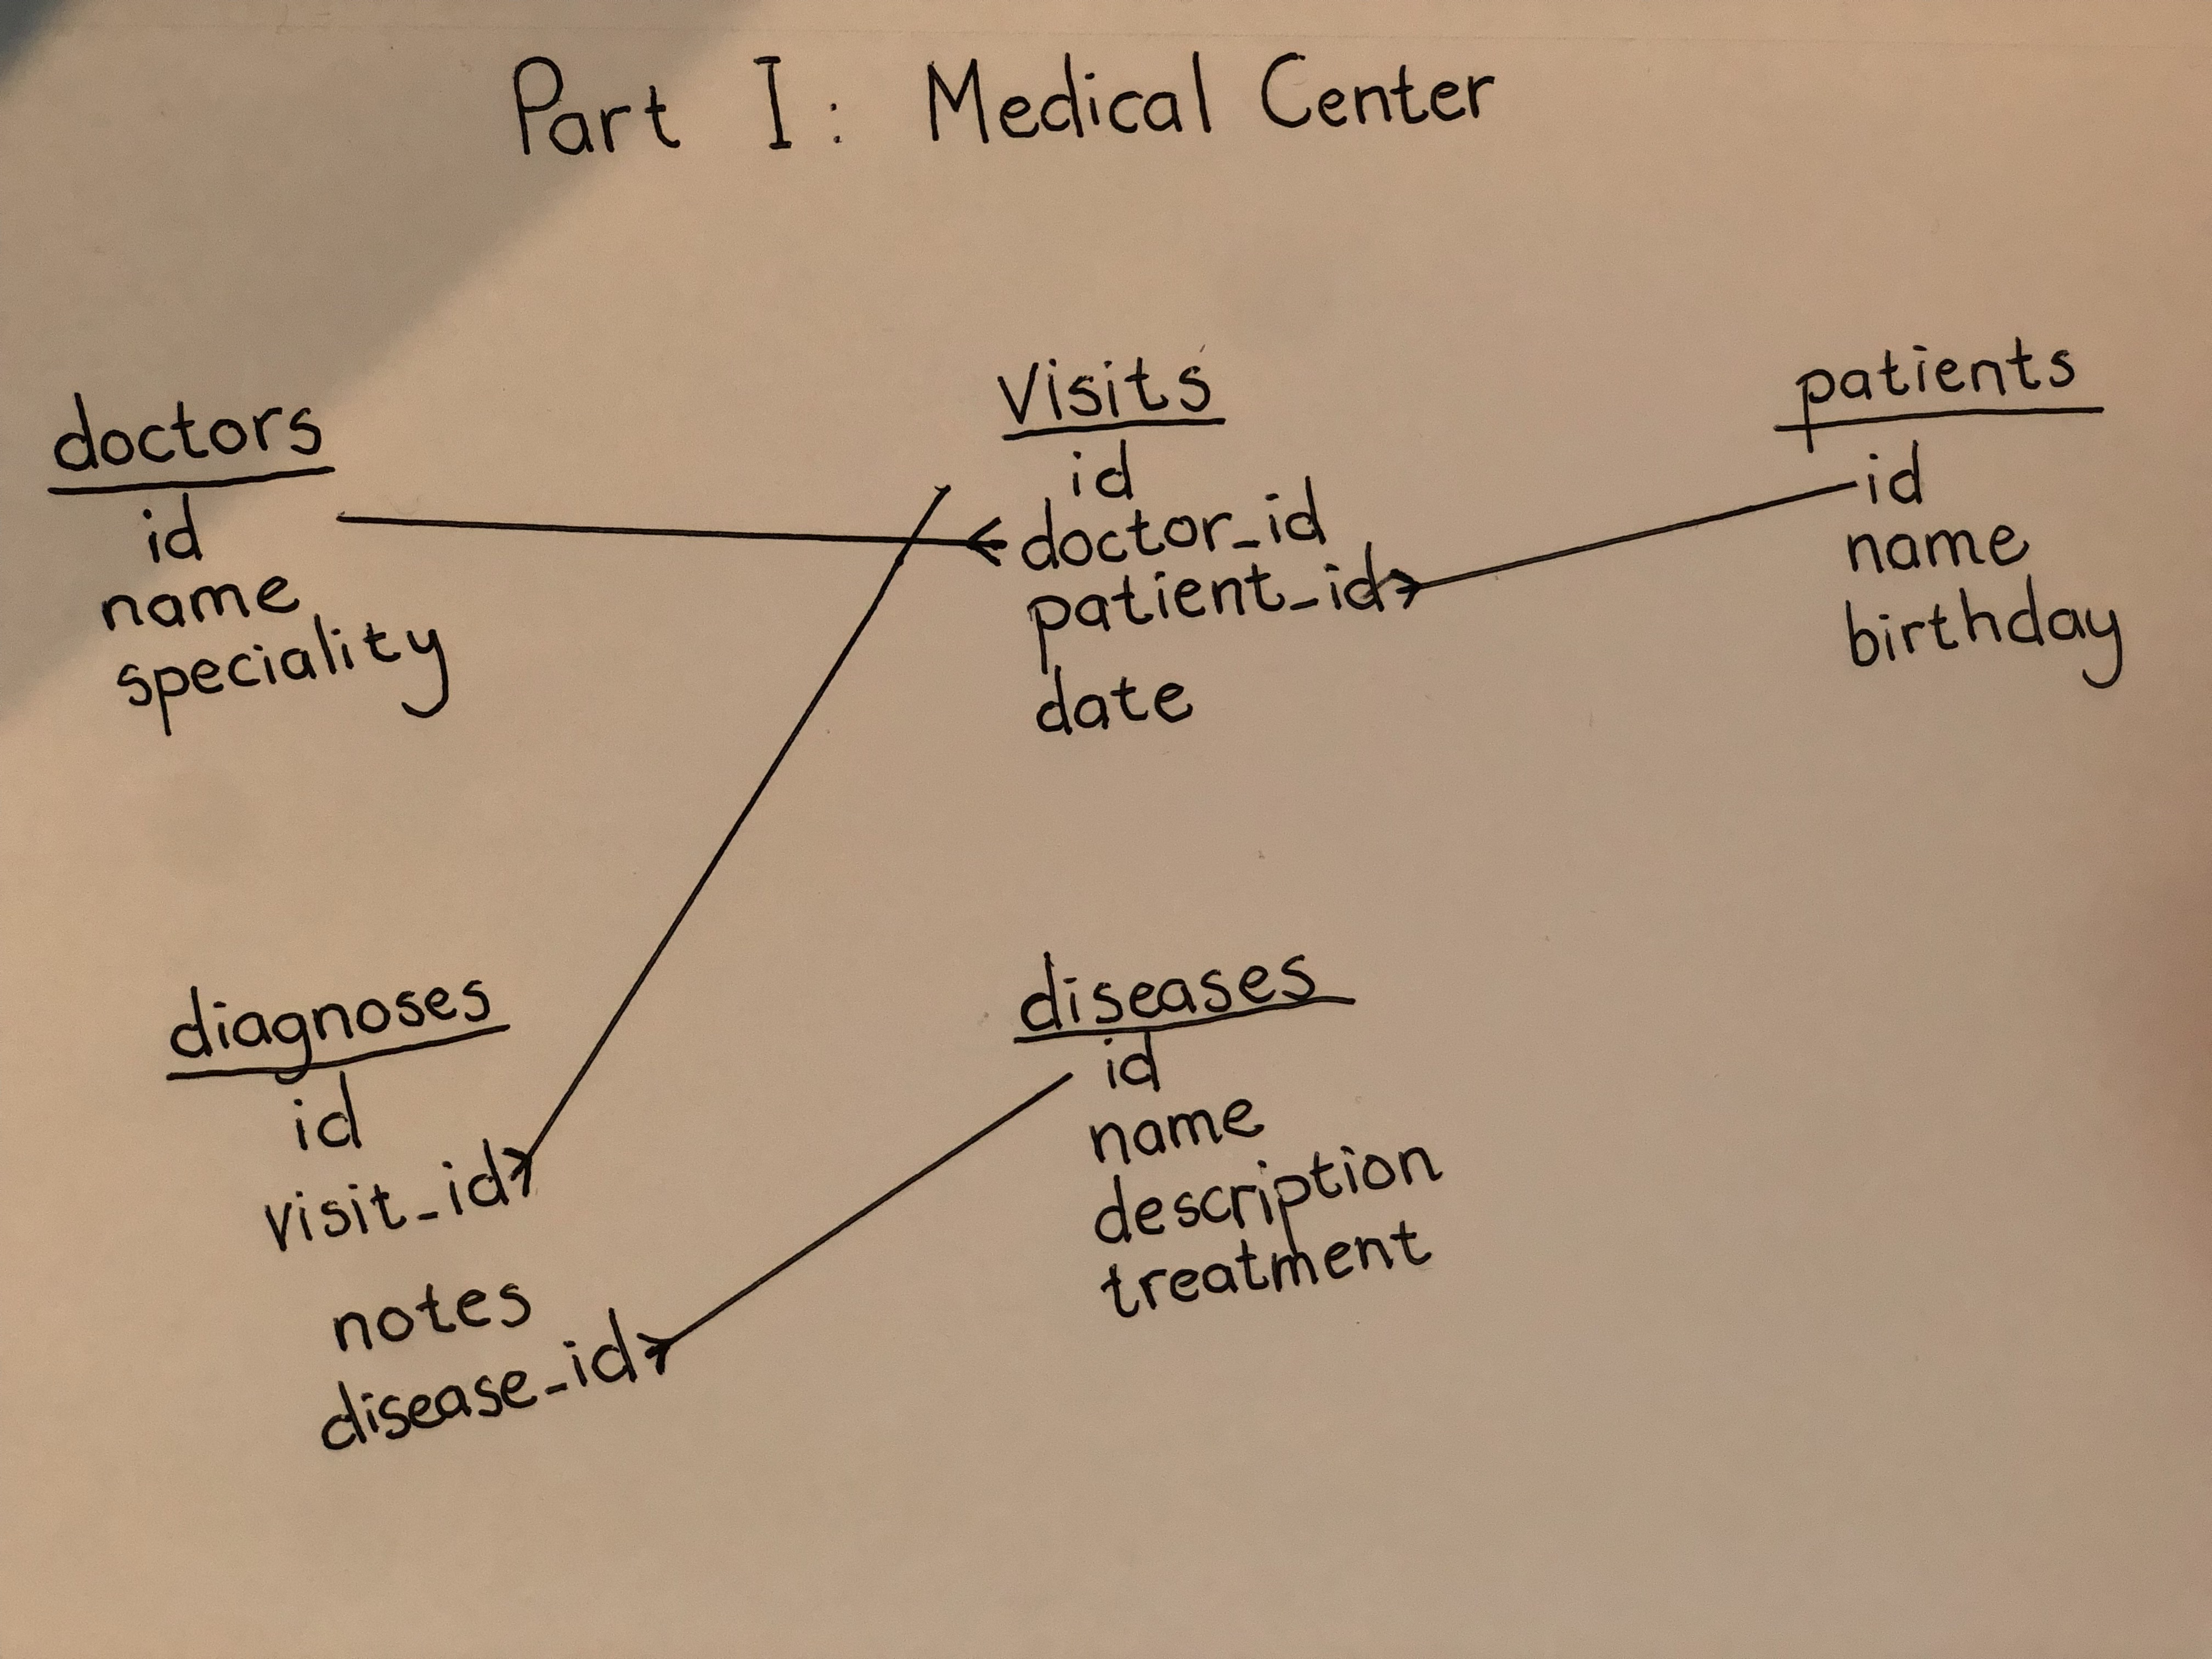 Part I: Medical Center
doctors
id
name
speciality
Visits
id
doctor_id
patient_id
date
patients
id
name
birthday
diagnoses
id
visit_id
notes
disease_id
diseases
id
name
description
treatment